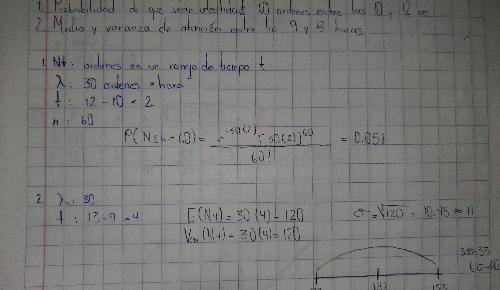 1. Probabilidad de que sean atendidas 60 ordenes entre las 10 y 12 am
2. Media y varianza de atención entre las 9 y 13 horas
1. Nt: ordenes en un rango de tiempo t
λ: 30 ordenes * hora
t: 12 - 10 = 2
n: 60
P(N2h = 60) = e^-30(2) [30(2)]^60 / 60! = 0.051
2. λ: 30
t: 13 - 9 = 4
E(N4) = 30(4) = 120
Var(N4) = 30(4) = 120
σ = √120 = 10.95 ≈ 11